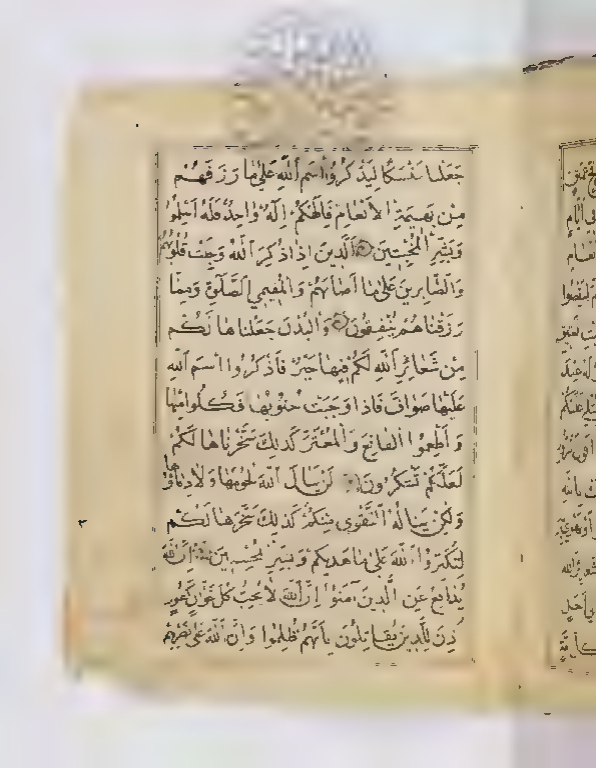 جَعَلْنَا مَنْسَكًا لِيَذْكُرُوا اسْمَ اللَّهِ عَلَىٰ مَا رَزَقَهُمْ
مِنْ بَهِيمَةِ الْأَنْعَامِ فَإِلَٰهُكُمْ إِلَٰهٌ وَاحِدٌ فَلَهُ أَسْلِمُوا
وَبَشِّرِ الْمُخْبِتِينَ الَّذِينَ إِذَا ذُكِرَ اللَّهُ وَجِلَتْ قُلُوبُهُمْ
وَالصَّابِرِينَ عَلَىٰ مَا أَصَابَهُمْ وَالْمُقِيمِي الصَّلَوٰةِ وَمِمَّا
رَزَقْنَاهُمْ يُنْفِقُونَ وَالْبُدْنَ جَعَلْنَاهَا لَكُمْ
مِنْ شَعَائِرِ اللَّهِ لَكُمْ فِيهَا خَيْرٌ فَاذْكُرُوا اسْمَ اللَّهِ
عَلَيْهَا صَوَافَّ فَإِذَا وَجَبَتْ جُنُوبُهَا فَكُلُوا مِنْهَا
وَأَطْعِمُوا الْقَانِعَ وَالْمُعْتَرَّ كَذَٰلِكَ سَخَّرْنَاهَا لَكُمْ
لَعَلَّكُمْ تَشْكُرُونَ لَنْ يَنَالَ اللَّهَ لُحُومُهَا وَلَا دِمَاؤُهَا
وَلَٰكِنْ يَنَالُهُ التَّقْوَىٰ مِنْكُمْ كَذَٰلِكَ سَخَّرَهَا لَكُمْ
لِتُكَبِّرُوا اللَّهَ عَلَىٰ مَا هَدَيٰكُمْ وَبَشِّرِ الْمُحْسِنِينَ إِنَّ اللَّهَ
يُدَافِعُ عَنِ الَّذِينَ آمَنُوا إِنَّ اللَّهَ لَا يُحِبُّ كُلَّ خَوَّانٍ كَفُورٍ
أُذِنَ لِلَّذِينَ يُقَاتَلُونَ بِأَنَّهُمْ ظُلِمُوا وَإِنَّ اللَّهَ عَلَىٰ نَصْرِهِمْ